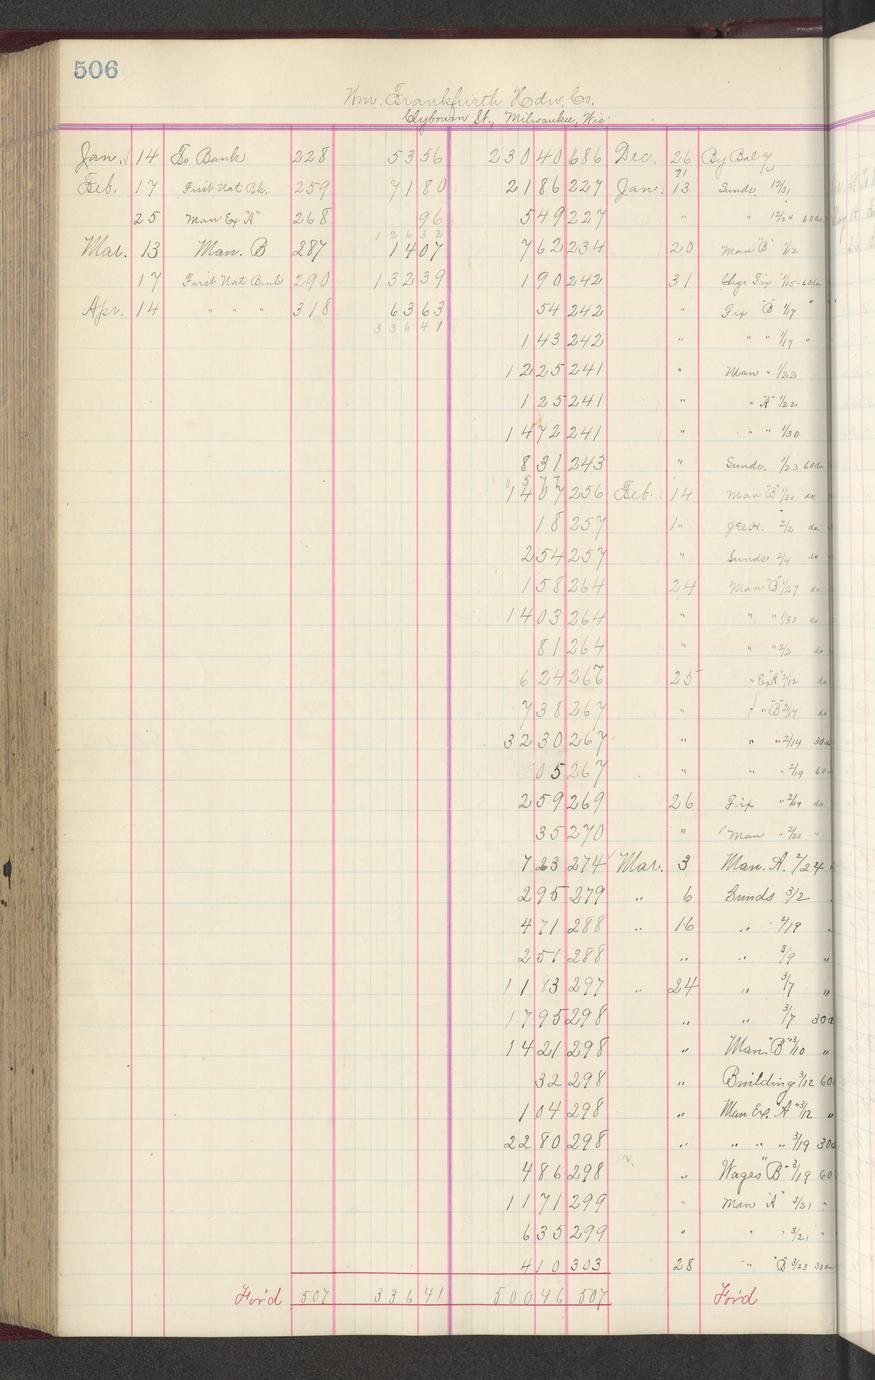 506
Wm. Frankfurth Hdw. Co.
Clybourn St., Milwaukee, Wis.
Jan. 14 To Bank 228 53 56 230 40 686 Dec. 26 By Bal
Feb. 17 First Nat Bk. 259 71 80 21 86 227 Jan. 91 13 Sunds 12/31
25 Man Ex "A" 268 96 5 49 227 " " 12/24 60da
126 32
Mar. 13 Man. B 287 14 07 7 62 234 20 Man "B" 1/2
17 First Nat Bank 290 132 39 1 90 242 31 Chgs Fix 1/15-60da
Apr. 14 " " " 318 63 63 54 242 " Fix "B" 1/17 "
336 41
1 43 242 " " " 1/17 "
12 25 241 " Man " 1/22
1 25 241 " " "A" 1/22
14 72 241 " " " 1/30
8 31 243 " Sunds. 1/23 60da
14 07 256 Feb. 14 Man "B" 1/30 do.
18 257 " 2/2 do
2 54 257 " Sunds 2/4 do
1 58 264 24 Man "B" 1/27 do.
14 03 264 " " " 1/30 do.
81 264 " " " 2/2 do
6 24 267 25 " Ex "A" 2/12 do
7 38 267 " " "B" 2/17 do
32 30 267 " " " 2/14 30d
05 267 " " " 2/19 60
2 59 269 26 Fix " 2/19 do
35 270 " Man " 2/23 "
7 23 274 Mar. 3 Man. A. 2/24 "
2 95 279 " 6 Sunds 3/2
4 71 288 " 16 " 2/19 "
2 51 288 " " 3/9 "
11 83 297 " 24 " 3/7 "
17 95 298 " " 3/7 30d
14 21 298 " Man. "B" 3/10 "
32 298 " Building 3/12 60
1 04 298 " Man Ex. "A" 3/12 "
22 80 298 " " " " 3/19 30d
4 86 298 " Wages "B" 3/19 60
11 71 299 " Man "A" 3/21 "
6 35 299 " " " 3/21 "
4 10 303 28 " "B" 3/23 30da
For'd 507 336 41 500 46 507 For'd